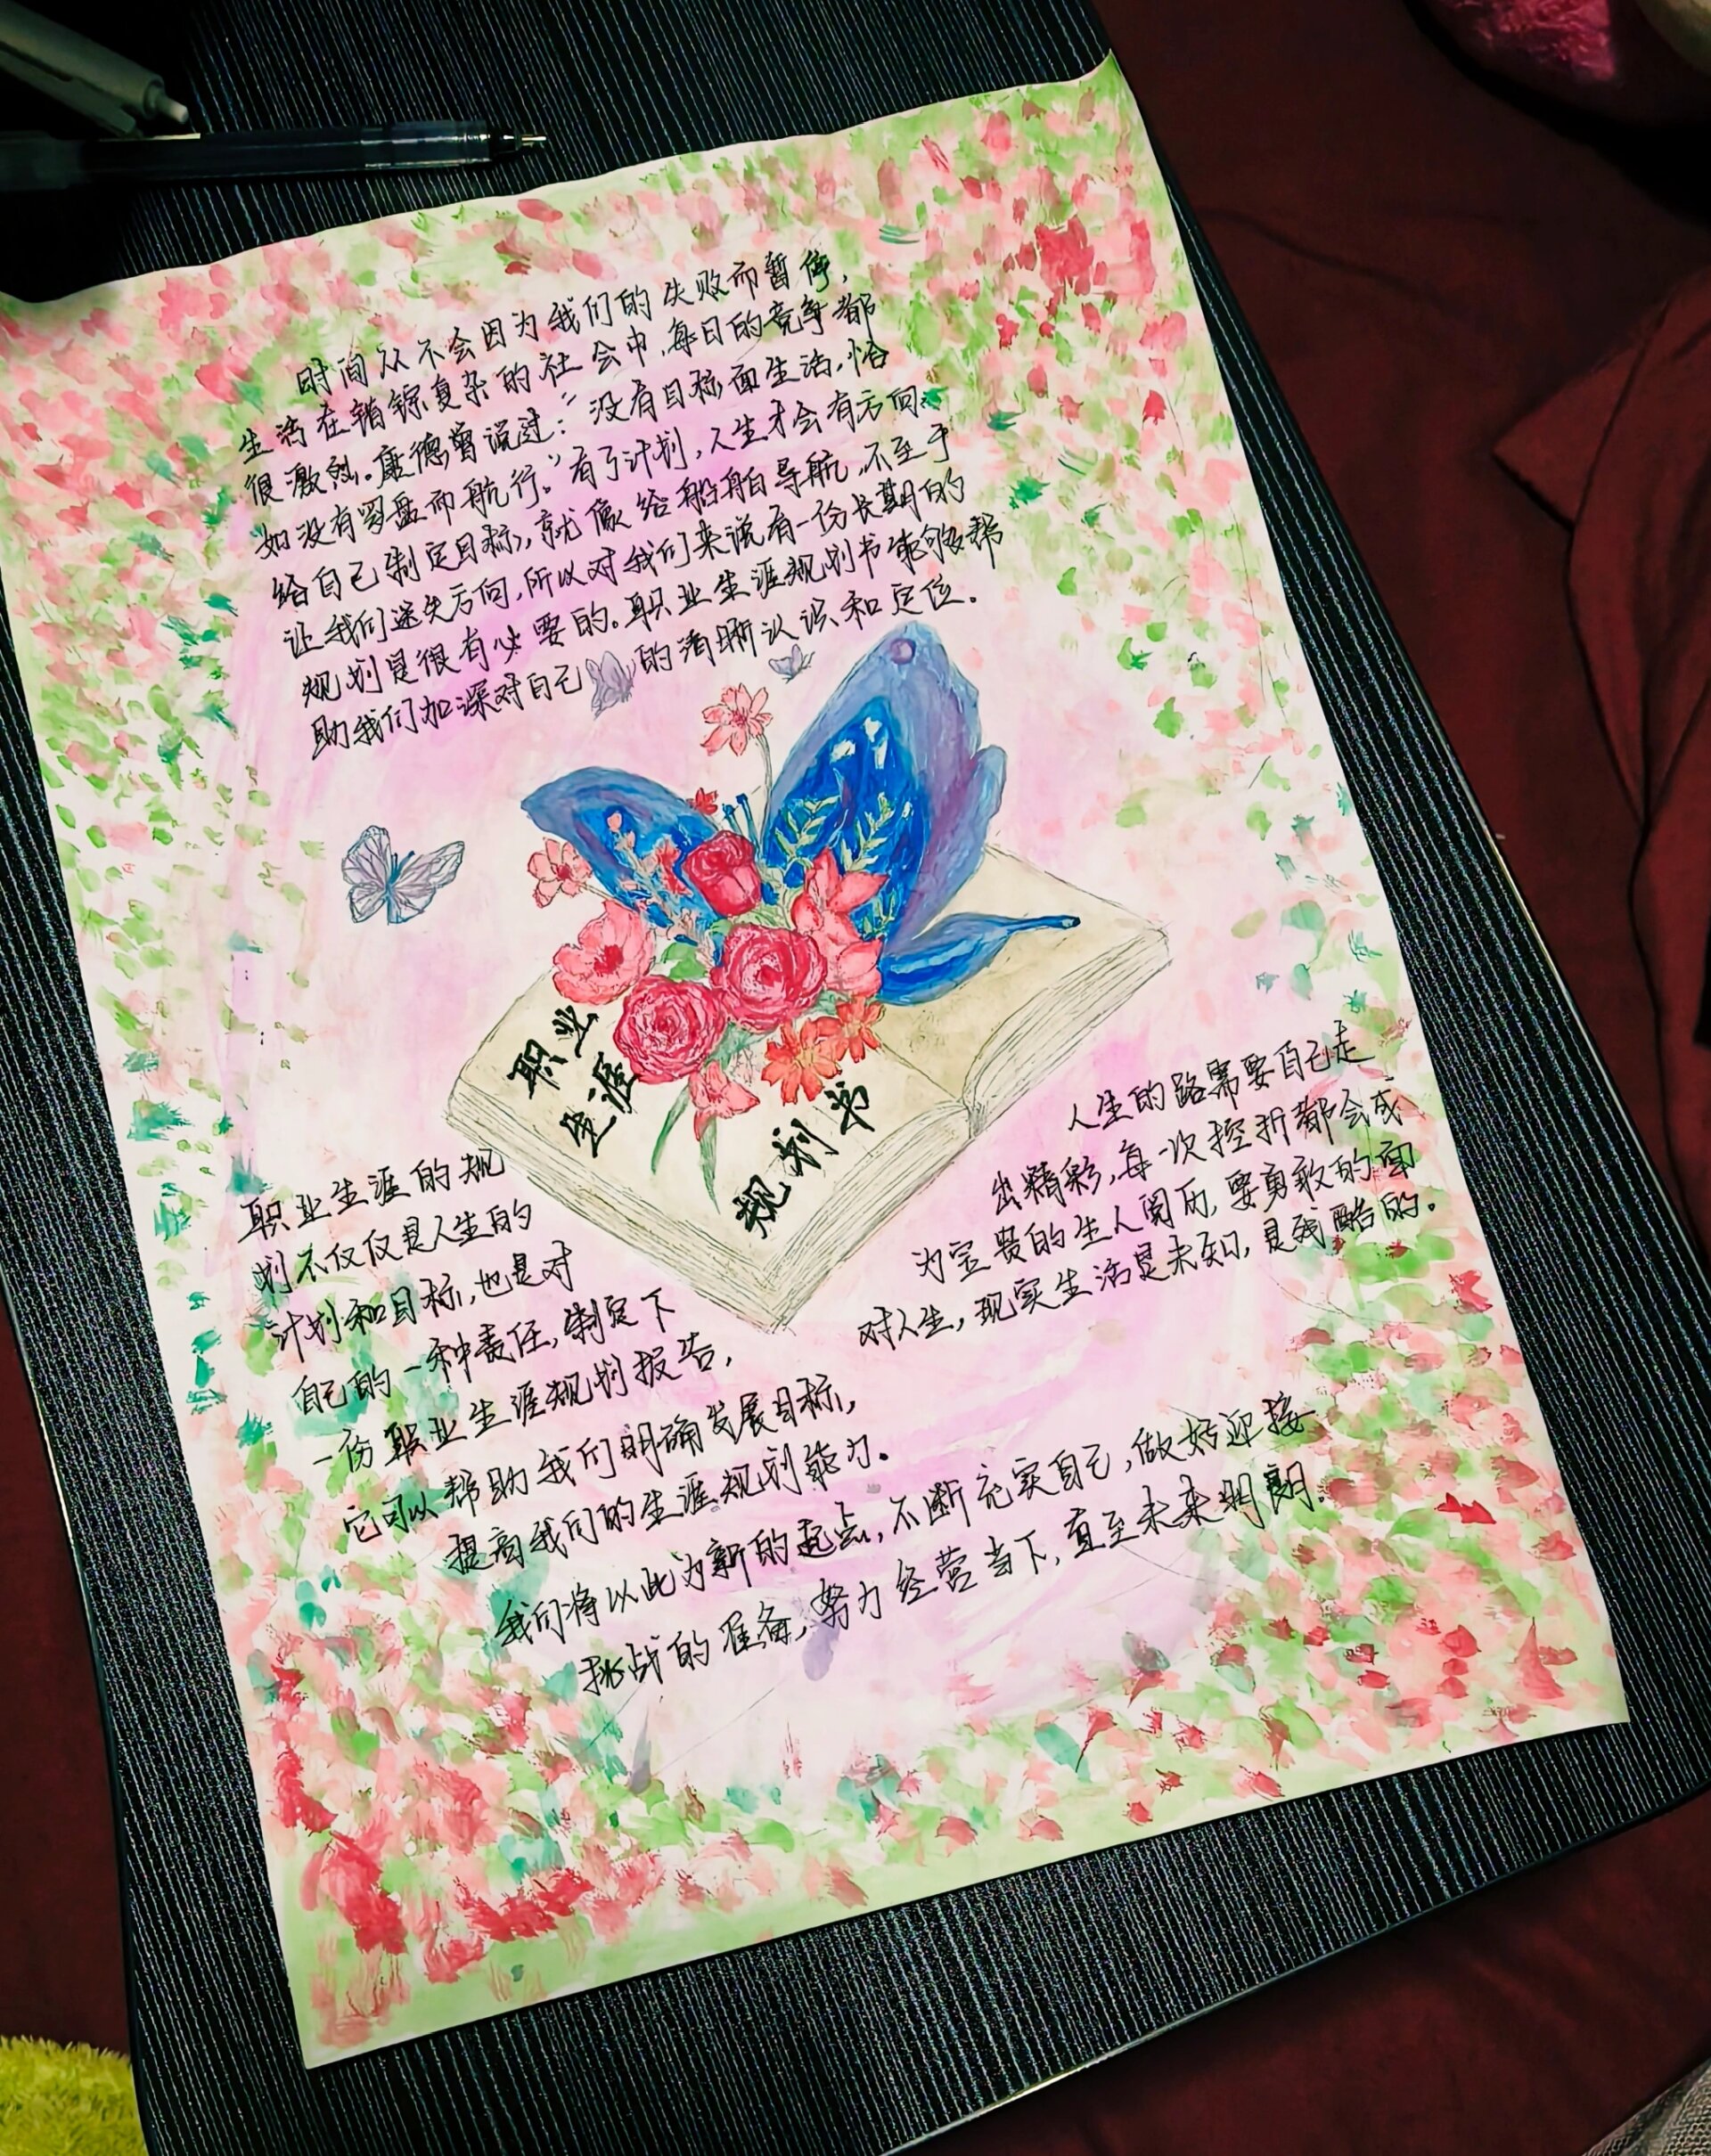 时间从不会因为我们的失败而暂停，
生活在错综复杂的社会中，每日的竞争都
很激烈。康德曾说过：“没有目标而生活，恰
如没有罗盘而航行。”有了计划，人生才会有方向。
给自己制定目标，就像给船舶导航，不至于
让我们迷失方向，所以对我们来说有一份长期的
规划是很有必要的。职业生涯规划书能够帮
助我们加深对自己的清晰认识和定位。
职业
生涯
规划书
职业生涯的规
划不仅仅是人生的
计划和目标，也是对
自己的一种责任，制定下
一份职业生涯规划报告，
它可以帮助我们明确发展目标，
提高我们的生涯规划能力。
人生的路需要自己走
出精彩，每一次挫折都会成
为宝贵的生人阅历，要勇敢的面
对人生，现实生活是未知，是残酷的。
我们将以此为新的起点，不断充实自己，做好迎接
挑战的准备，努力经营当下，直至未来明朗。